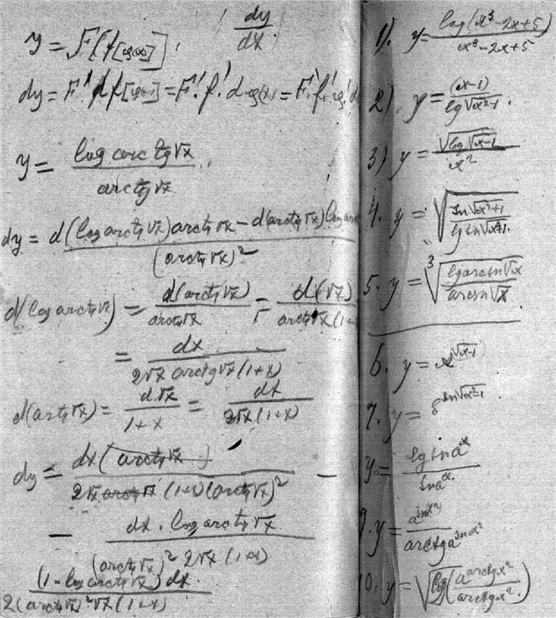 y = F{f[φ(x)]}, dy/dx
dy = F' df[φ(x)] = F'.f'.dφ(x) = F'.f'.φ'
y = log arctg √x / arctg √x
dy = d(log arctg √x) arctg √x - d(arctg √x) log arc / (arctg √x)²
d(log arctg √x) = d(arctg √x) / arctg √x = d(√x) / arctg √x (1+x)
= dx / 2√x arctg √x (1+x)
d(arctg √x) = d√x / 1+x = dx / 2√x (1+x)
dy = dx (arctg √x) / 2√x arctg √x (1+x)(arctg √x)² -
- dx . log arctg √x / (arctg √x)² 2√x (1+x)
(1 - log arctg √x) dx / 2(arctg √x)² √x (1+x)
1). y = log(x³-2x+5) / x³-2x+5
2). y = (x-1) / lg √x²-1
3) y = √log √x-1 / x²
4. y = √sn √x²+1 / lg sn √x²+1
5. y = ³√lg arcsn √x / arcsn √x
6. y = x^√x-1
7. y = 8^sn √x²-1
y = lg sn a^x / sn a^x
9. y = a^sn x² / arctg a^sn x²
10. y = √lg(a^arctg x² / arctg x²)